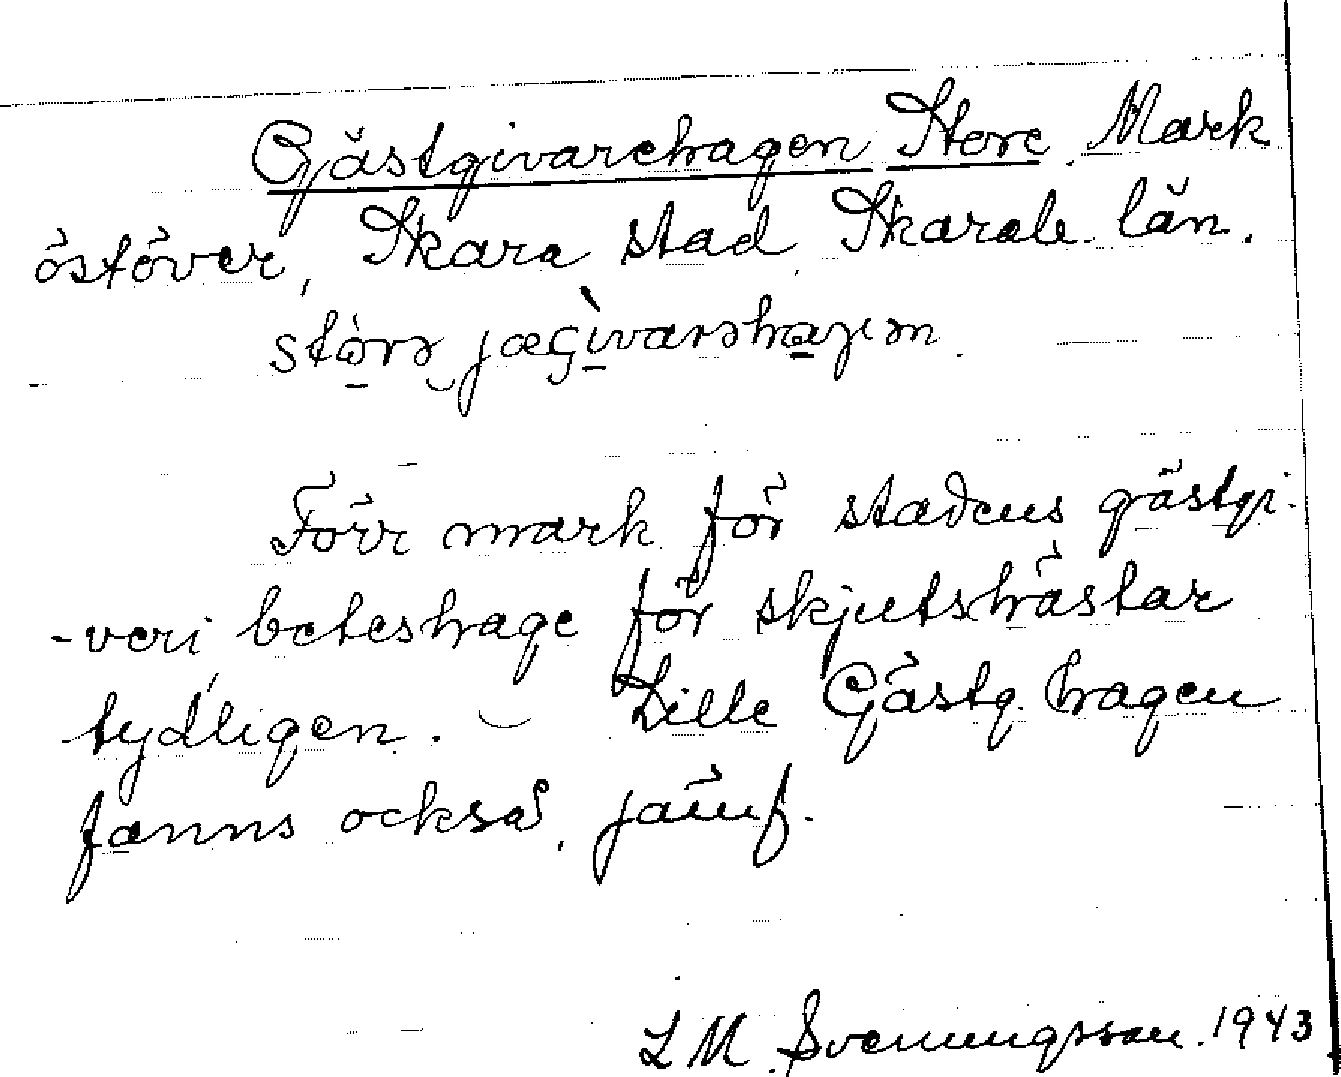 Gästgivarehagen Store. Mark
öståver, Skara stad, Skarab. län.
Förr mark för stadens gästgi-
-veri beteshage för skjutshästar
tydligen. – Lille Gästg. hagen
fanns också, jämf.
L M. Svenungsson. 1943